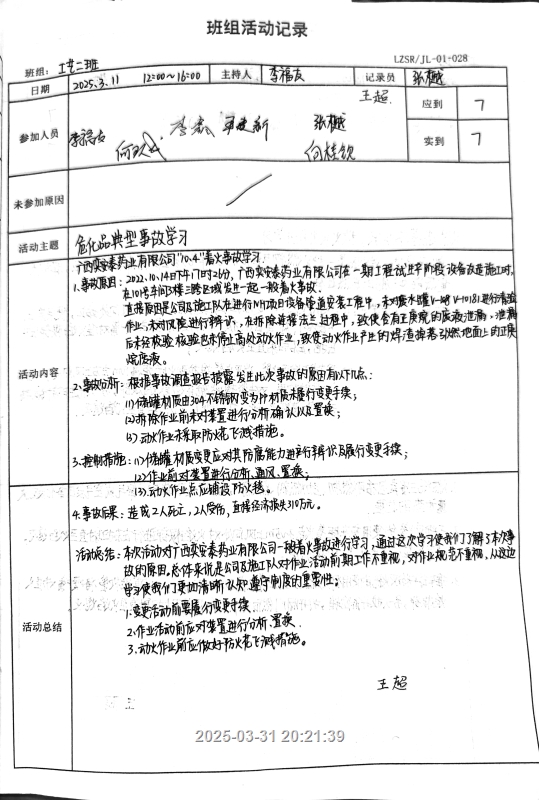 班组活动记录
班组: 工艺二班 LZSR/JL-01-028
日期 2025.3.11 12:00~16:00 主持人 李福友 记录员 张樾
参加人员 王超 应到 7
李福友 张樾
何桂钦 实到 7
未参加原因
活动主题 危化品典型事故学习
活动内容
广西奕安泰药业有限公司"10.4"着火事故学习.
1.事故原因: 2022.10.14日下午17时26分, 广西奕安泰药业有限公司在一期工程试生产阶段设备改造施工时,
在101号车间3楼三跨区域发生一起一般着火事故.
直接原因是公司及施工队在进行NH项目设备管道安装工程中, 未对废水罐V-10181进行清洗
作业, 未对风险进行辨识, 在拆除连接法兰过程中, 致使含有正庚烷的废液泄漏, 泄漏
后未经核验核验也未停止高处动火作业, 致使动火作业产生的焊渣掉落引燃地面上的正庚
烷废液。
2.事故分析: 根据事故调查报告披露发生此次事故的原因有以下几点:
(1)储罐材质由304不锈钢变为PP材质未履行变更手续;
(2)拆除作业前未对装置进行分析确认以及置换;
(3)动火作业未采取防火花飞溅措施。
3.控制措施: (1)储罐材质变更应对其防腐能力进行辨识及履行变更手续;
(2)作业前对装置进行分析、通风、置换;
(3)动火作业点应铺设防火毯。
4.事故后果: 造成2人死亡, 2人受伤, 直接经济损失310万元。
活动总结
活动总结: 本次活动对广西奕安泰药业有限公司一般着火事故进行学习, 通过这次学习使我们了解了本次事
故的原因, 总体来说是公司及施工队对作业活动前期工作不重视, 对作业规范不重视, 从这边
学习使我们更加清晰认知遵守制度的重要性;
1.变更活动前要履行变更手续
2.作业活动前应对装置进行分析、置换.
3.动火作业前应做好防火花飞溅措施。
王超
2025-03-31 20:21:39